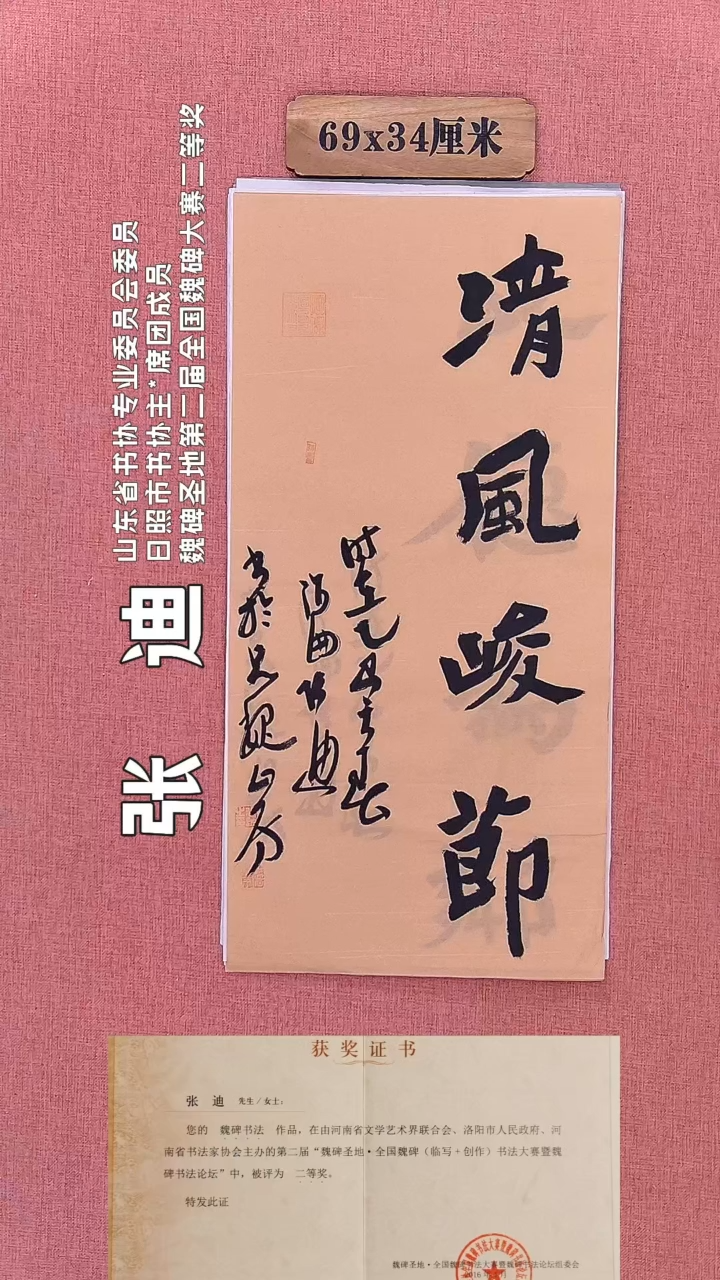 69x34厘米
山东省书协专业委员会委员
日照市书协主*席团成员
魏碑圣地第二届全国魏碑大赛二等奖
张 迪
清風峻節
获奖证书
张 迪 先生/女士：
您的 魏碑书法 作品，在由河南省文学艺术界联合会、洛阳市人民政府、河
南省书法家协会主办的第二届“魏碑圣地·全国魏碑（临写+创作）书法大赛暨魏
碑书法论坛”中，被评为 二等奖。
特发此证
魏碑圣地·全国魏碑书法大赛暨魏碑书法论坛组委会